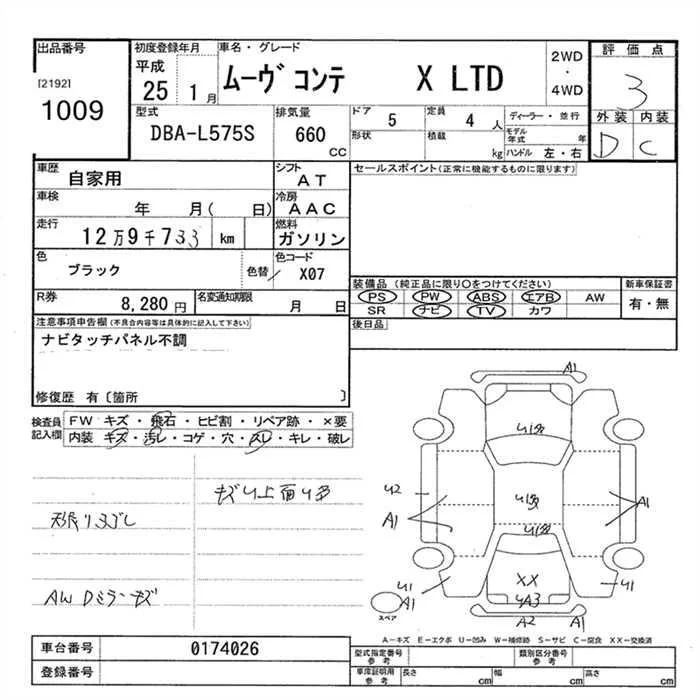 出品番号
[2192]
1009
初度登録年月
平成
25 1月
車名・グレード
ムーヴ コンテ X LTD
2WD
・
4WD
評価点
3
外装 内装
D C
型式
DBA-L575S
排気量
660 CC
ドア 5
定員 4 人
形状
積載 kg
ディーラー・並行
モデル年式 年
ハンドル 左・右
車歴
自家用
シフト
AT
車検
年 月( 日)
冷房
AAC
走行
12万9千733 km
燃料
ガソリン
色
ブラック
色替
色コード
X07
R券
8,280円
名変通知期限
月 日
セールスポイント(正常に機能するものに限ります)
装備品 (純正品に限り○をつけてください)
PS PW ABS エアB AW
SR ナビ TV カワ
新車保証書
有・無
後日品
注意事項申告欄(不良合内容等は具体的に記入して下さい)
ナビタッチパネル不調
修復歴 有〔箇所 〕
検査員記入欄
FW キズ・飛石・ヒビ割・リペア跡・×要
内装 キズ・汚レ・コゲ・穴・スレ・キレ・破レ
キズ U 上面 U 多
AW Dミラーキズ
A1
U1多
U2
A1
U1多
A1
U1多
U1
A1
XX
UA3
U1
A2
A1
スペア
A-キズ E-エクボ U-凹み W-補修跡 S-サビ C-腐食 XX-交換済
車台番号
0174026
登録番号
型式指定番号
参考
類別区分番号
参考
車庫証明用
参考
長さ cm
幅 cm
高さ cm